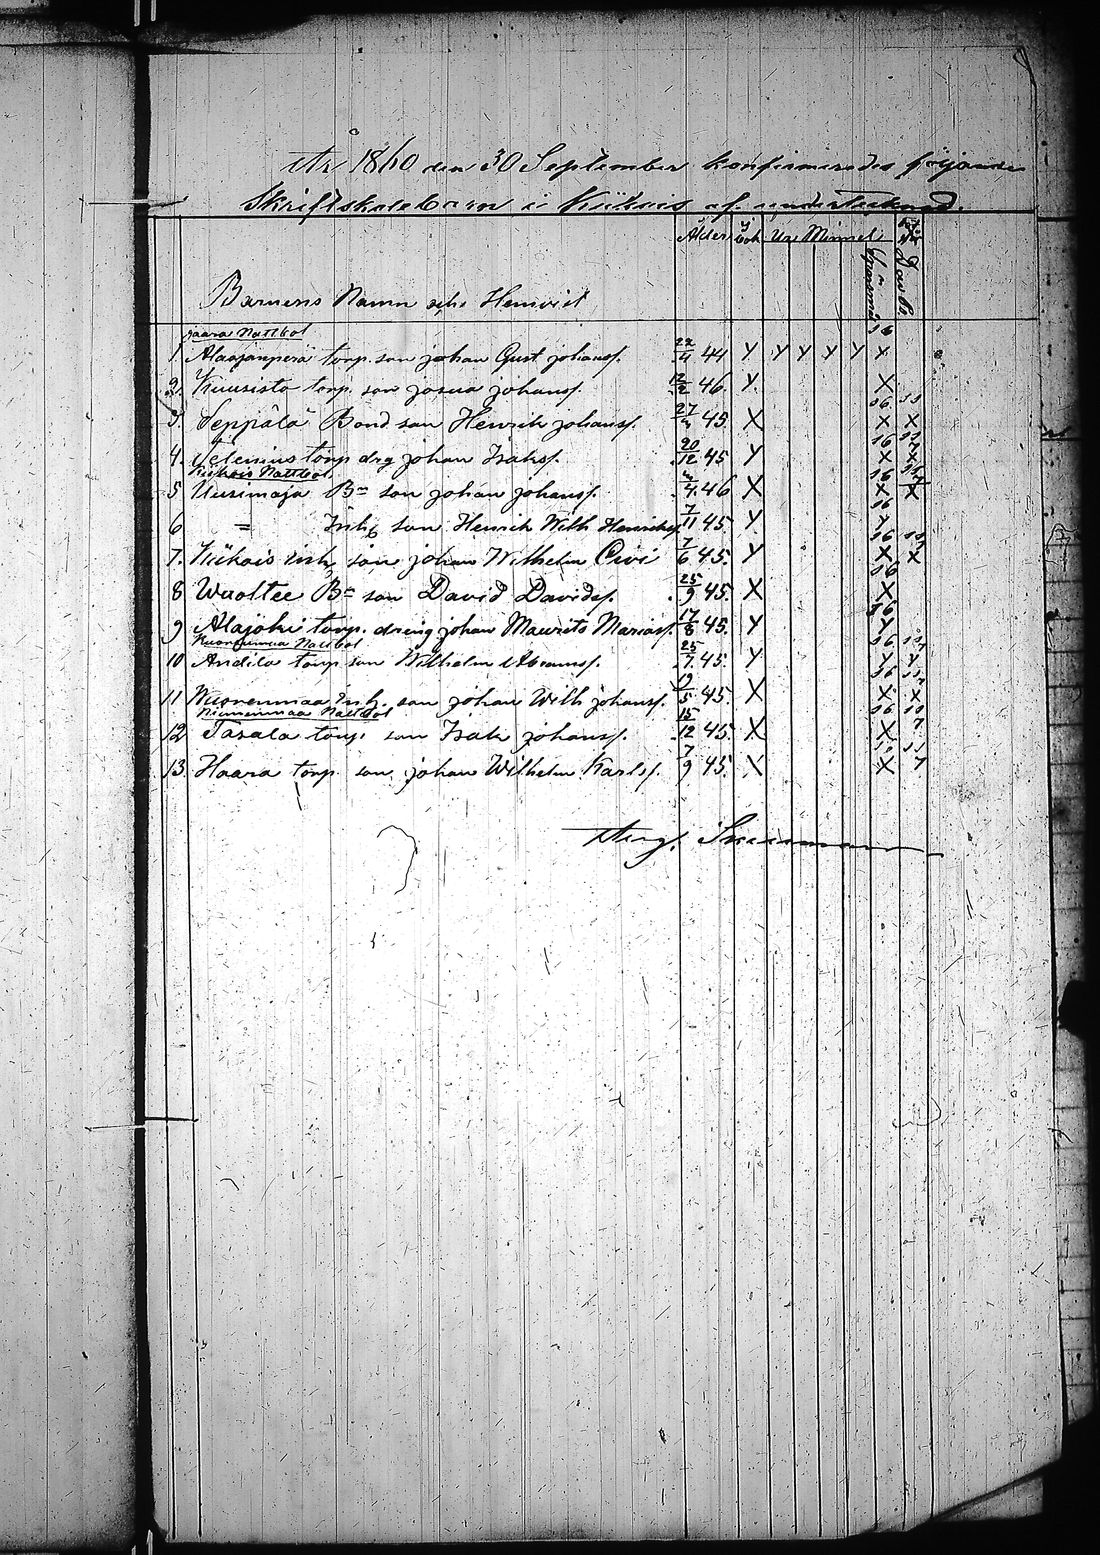 År 1860 den 30 September konfirmerades följande
Skriftskolebarn i Kiikois af undertecknad.
Ålder i bok Ur Minnet
Spörsmål
Barnens Namn och Hemvist
Jaara Nattbol
1 Alaojanperä torp. son Johan Gust Johansf. 22/4 44 Y Y Y Y Y X
2. Kuusisto torp. son Josua Johansf. 12/2 46. Y. X
3. Seppälä Bond son Henrik Johansf. 27/4 45. X X X
4. Selenius torp drg Johan Isaksf. 20/12 45 Y X X
Kiikois Nattbol
5 Uusimaja Bn son Johan Johansf. 46 X X X
6 = Inh. son Henrik Wilh Henriksf. 7/11 45. Y Y
7. Kiikois inh. son Johan Wilhelm 7/6 45. Y X X
8 Wuoltee Bn son David Davidsf. 25/9 45. X X
9 Alajoki torp. dräng Johan Maurits Mariasf. 17/8 45. Y Y
Kuorenmaa Nattbol
10 Andila torp son Wilhelm Abramsf. 25/7 45. Y Y Y
11 Kuorenmaa Inh. son Johan Wilh Johansf. 19/5 45. X X X
Niemenmaa Nattbol
12 Tasala torp. son Isak Johansf. 15/12 45. X X
13. Haara torp. son Johan Wilhelm Karlsf. 7/9 45. X X
Aug. Snellman